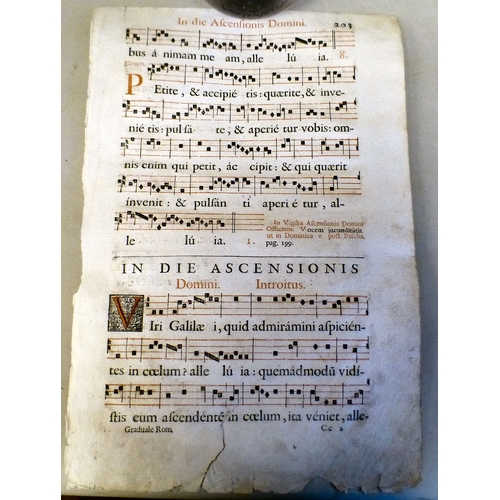 In die Ascensionis Domini. 203
bus á nimam me am, alle lú ia. 8.
PEtite, & accipié tis: quærite, & inve-
nié tis: pulſa te, & aperié tur vobis: om-
nis enim qui petit, ác cipit: & qui quærit
ínvenit: & pulſán ti aperi é tur, al-
le lú ia. 1.
In Vigilia Ascensionis Domini
Officium Vocem jucunditatis.
ut in Dominica v. post Pascha,
pag. 199.
IN DIE ASCENSIONIS
Domini. Introitus.
VIri Galilæ i, quid admirámini aſpicién-
tes in cœlum? alle lú ia: quemádmodũ vidí-
ſtis eum aſcendéntẽ in cœlum, ita véniet, alle-
Graduale Rom. Cc 2